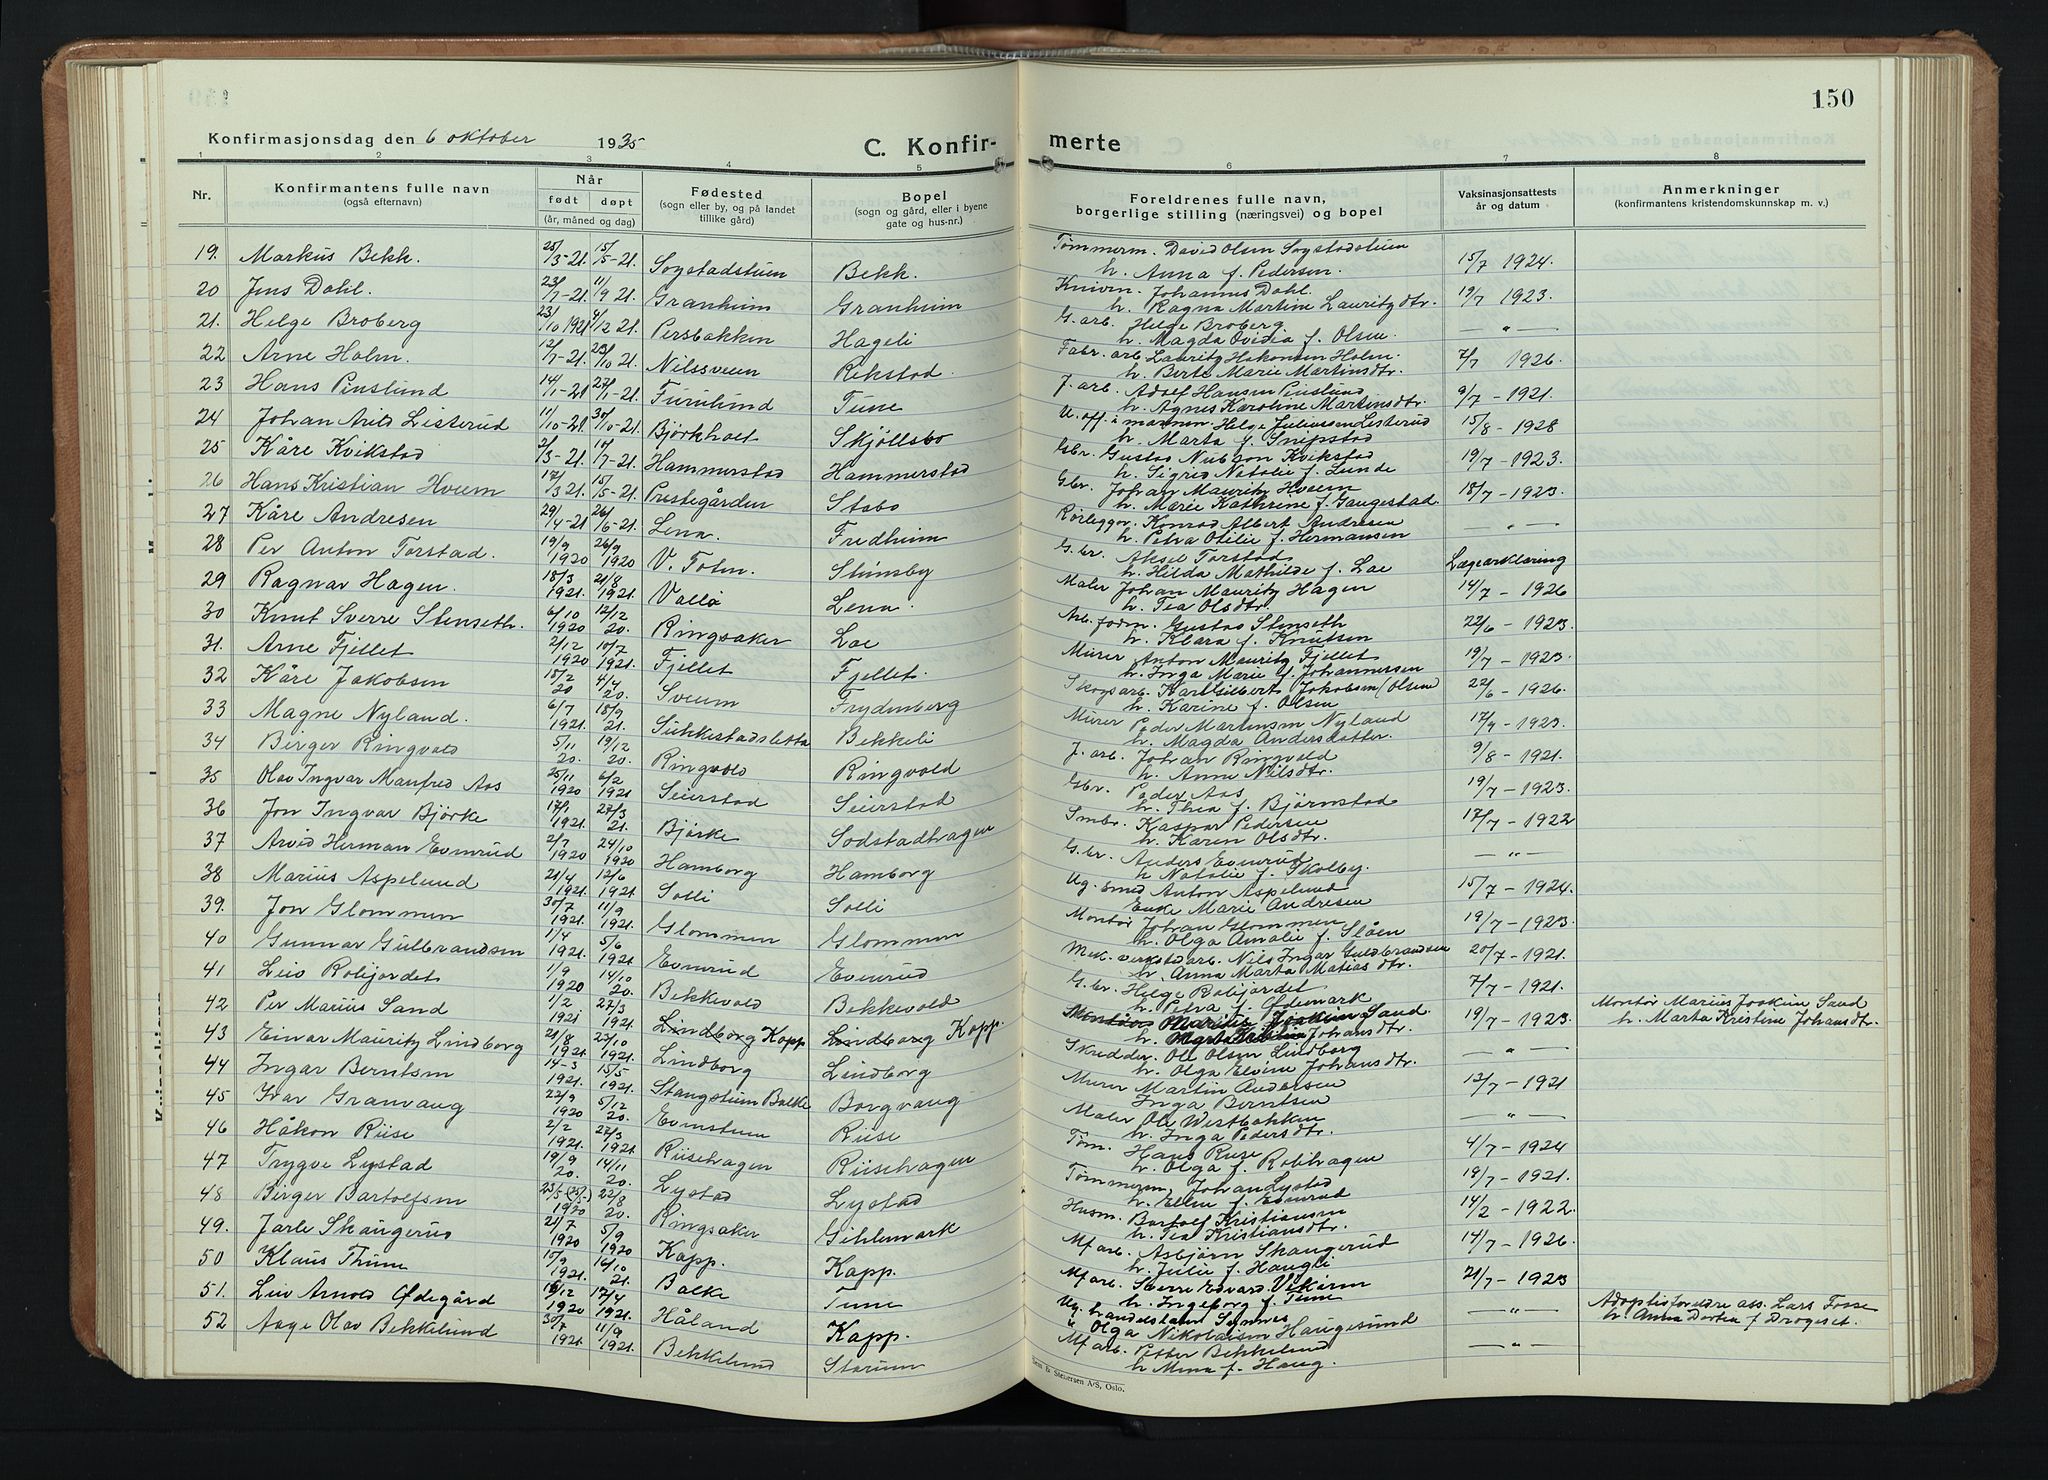 150
Konfirmasjonsdag den 6 oktober 1935
C. Konfir-
merte
1 2 3 4 5 6 7 8
Nr.
Konfirmantens fulle navn
(også efternavn)
Når
født døpt
(år, måned og dag)
Fødested
(sogn eller by, og på landet
tillike gård)
Bopel
(sogn og gård, eller i byene
gate og hus-nr.)
Foreldrenes fulle navn,
borgerlige stilling (næringsvei) og bopel
Vaksinasjonsattests
år og datum
Anmerkninger
(konfirmantens kristendomskunnskap m. v.)
19. Markus Bekk. 25/3-21. 15/5-21. Sogstadstuen Bekk. Tømmerm. David Olsen Sogstadstuen
h. Anna f. Pedersen. 15/7 1924.
20 Jens Dahl. 23/7-21 11/9 21. Granheim Granheim Knivm. Johannes Dahl.
h. Ragna Martine Lauritzdtr. 19/7 1923.
21. Helge Broberg 23/10 1921 4/12 21. Persbakken Hageli G.arb. Helge Broberg
h. Magda Ovidia f. Olsen — " —
22 Arne Holm. 12/7-21. 23/10 21. Nilssveen Rekstad. Fabr. arb. Lauritz Hakonsen Holm.
h. Berte Marie Martinsdtr. 7/7 1926.
23 Hans Penslund 14/1-21 27/1-21. Furulund Tune J. arb. Adolf Hansen Penslund
h. Agnes Karoline Martinsdtr. 9/7 - 1921.
24 Johan Arild Listerud 11/10-21. 30/10-21. Björkholt Skjöllsbo U. off. i marinen Helge Juliussen Listerud
h. Marta f. Snipstad 15/8 - 1928
25 Kåre Kvikstad 2/3-21. 17/7-21. Hammerstad Hammerstad Gbr. Gustav Nielson Kvikstad
h. Sigrid Natalie f. Lunde 19/7 - 1923.
26 Hans Kristian Hveem 17/3 21. 15/5-21. Prestegården Stabo Gbr. Johan Mauritz Hveem
h. Marie Kathrine f. Gaugestad 18/7 - 1923.
27 Kåre Andresen 29/4-21 26/6-21. Lena. Fredheim Rørleggr. Konrad Albert Andresen
h. Petra Otilie f. Hermansen — " —
28 Per Anton Torstad. 19/9 1920 26/9 1920 V. Toten. Stensby G.br. Aksel Torstad
h. Hilda Mathilde f. Loe Lægeerklæring
29 Ragnar Hagen. 18/3 1921. 21/8 1921. Vallø Lena. Maler Johan Mauritz Hagen
h. Tea Olsdtr. 14/7 - 1926
30 Knut Sverre Stenseth. 6/10 1920 12/12 20. Ringsaker Loe Arb. fodm. Gustav Stenseth
h. Klara f. Knutsen 22/6 - 1923.
31. Arne Fjellet 2/12 1920 10/7 1921. Fjellet Fjellet. Murer Anton Mauritz Fjellet
h. Inga Marie f. Johannessen 19/7 - 1923.
32 Kåre Jakobsen 15/2 20 4/4 20. Sveum Frydenberg Skogsarb. Karl Gilbert Jakobsen (Olsen)
h. Karine f. Olsen 22/6 - 1926.
33 Magne Nyland. 6/7 1921. 18/9 21. Sukkestadsletta Bekkeli Murer Peder Martinsen Nyland
h. Magda Andersdatter. 17/9 - 1923.
34 Birger Ringvold 5/11 20. 19/12 20. Ringvold Ringvold J. arb. Johan Ringvold
h. Anne Nilsdtr. 9/8 - 1921.
35 Olav Ingvar Manfred Aas 25/11 1920 6/2 1921 Seierstad Seierstad Gbr. Peder Aas
h. Thea f. Bjørnstad 19/7 - 1923.
36 Jon Ingvar Bjørke 17/1 1921. 27/3 21. Bjørke Sodstadhagen Smbr. Kaspar Pedersen
h. Karen Olsdtr. 17/7 - 1922
37 Arvid Herman Evenrud 2/7 1920 24/10 1920 Hamborg Hamborg G.br. Anders Evenrud
h Natalie f. Skolby. — " —
38 Marius Aspelund 21/4 1921. 12/6 1921. Solli Solli Ug. smed Anton Aspelund
Enke Marie Andresen 15/7 - 1924.
39. Jon Glommen 30/7 1921. 11/9 1921. Glommen Glommen Montør Johan Glommen
h. Olga Amalie f. Slåen 19/7 - 1923.
40 Gunnar Gulbrandsen 1/4 1921. 5/6 1921 Evenrud Evenrud Mek. verkstedarb. Nils Ingar Guldbrandsen
h. Anna Marta Matiasdtr. 20/7 - 1921.
41 Leiv Robijordet 1/9 1920 14/10 20. Bekkevold Bekkevold G.br. Helge Robijordet
h. Petra f. Ødemark 7/7 - 1921.
42 Per Marius Sand 1/2 1921 27/3 1921. Lindborg Kapp Lindborg Kapp Montør Marius Joakim Sand
h. Johansdtr. 19/7 - 1923. Montør Marius Joakim Sand
h. Marta Kristine Johansdtr.
43 Einar Mauritz Lindborg 21/8 1921. 23/10 1921. Lindborg Lindborg Skredder. Ole Olsen Lindborg
h. Olga Elvine Johansdtr. — " —
44 Ingar Berntsen 14-3 1921. 15/5 1921. Stangstuen Balke Borgvang Murer Martin Andersen
Inga Berntsen 12/7 - 1921
45 Ivar Granvang 22/9 1920 5/12 20. Evenstuen Riise Maler Ole Westbakken
h. Inga Pedersdtr. — " —
46 Håkon Riise 2/2 1921. 27/3 1921. Riisehagen Riisehagen Tøm. Hans Riise
h. Olga f. Robihagen 4/7 - 1924
47 Trygve Lystad 19/9 20. 14/11 20. Lystad Lystad Tømmerm. Johan Lystad
h. Ellen f. Evenrud 19/7 - 1921.
48 Birger Bartolfsen 23/5 (25/5) 1920 22/8 20. Ringsaker Gihlemark Husm. Bartolf Kristiansen
h. Tea Kristiansdtr. 14/2 - 1922.
49. Jarle Skaugerud 21/7 1920 5/9 1920 Kapp. Kapp. Mf arb. Asbjørn Skaugerud
h. Julie f. Haugli 14/7 - 1926.
50 Klaus Thune 10/9 1921. 16/10 21. Balke Tune Mf arb. Sverre Edvard Vikåren
h. Ingeborg f. Tune 21/7 - 1923
51. Leiv Arnold Ødegård 15/12 1920 17/4 1921. Håland Kapp. Ug. handelsland Synnes
u Olga Nikolaisen Haugesund — " — Adoptivforeldre ass. Lars Fosse
h. Anna Dortea f. Drageset.
52 Aage Olav Bekkelund 30/7 1921. 11/9 1921. Bekkelund Starum Mf arb. Petter Bekkelund
h Mina f. Haug. — " —
Sem & Stenersen A/S, Oslo.